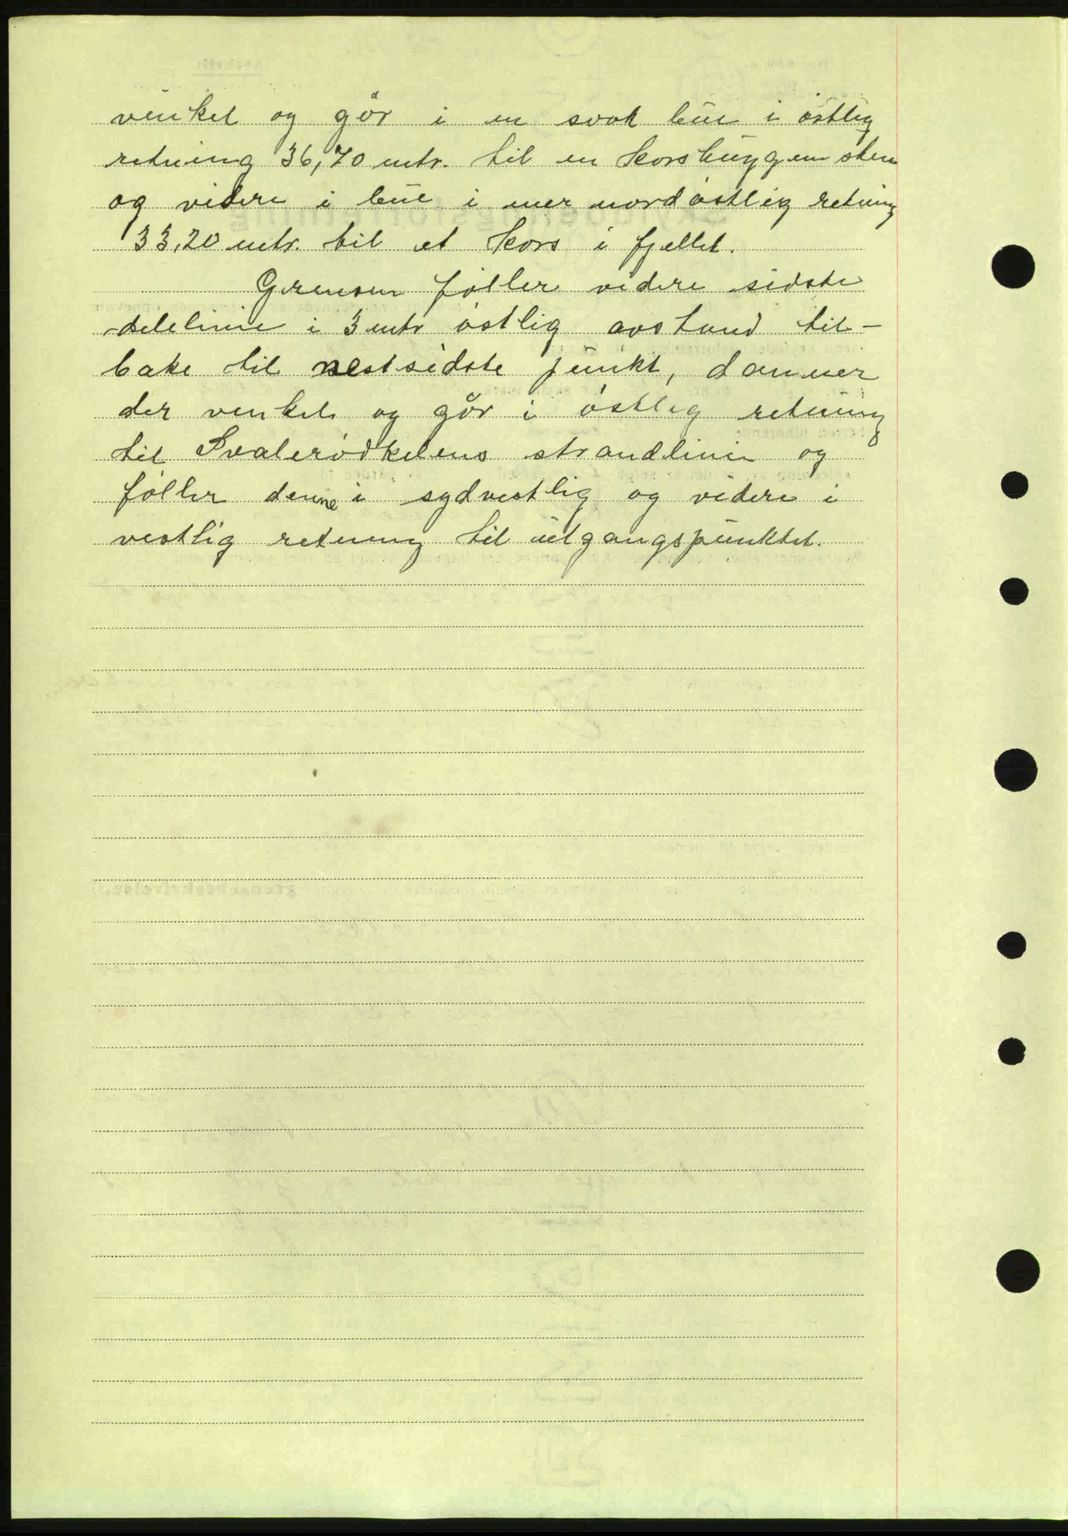 vinkel og går i en svak bue i østlig
retning 36,70 mtr. til en korshuggen sten
og videre i bue i mer nordøstlig retning
33,20 mtr. til et kors i fjellet.
Grensen føller videre sidste
delelinie i 3 mtr østlig avstand til-
bake til nestsidste punkt, danner
der vinkel og går i østlig retning
til Svalerødkilens strandlinie og
føller denne i sydvestlig og videre i
vestlig retning til utgangspunktet.